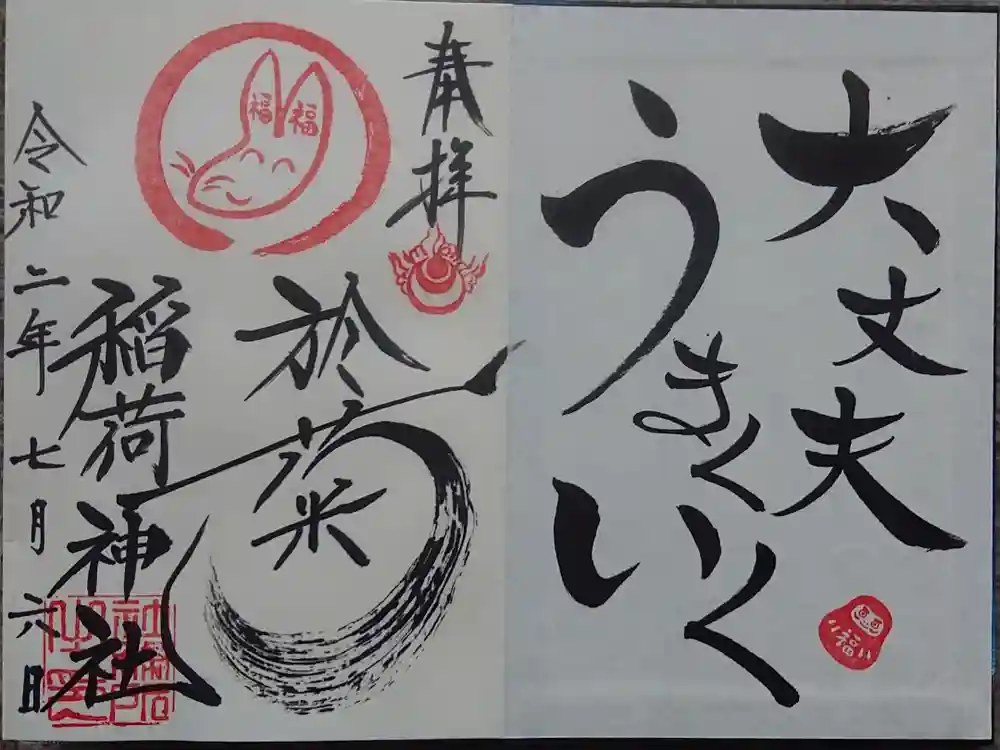 大丈夫
うまくいく
福
奉拝
福福
於菊
稲荷神社
令和二年七月六日